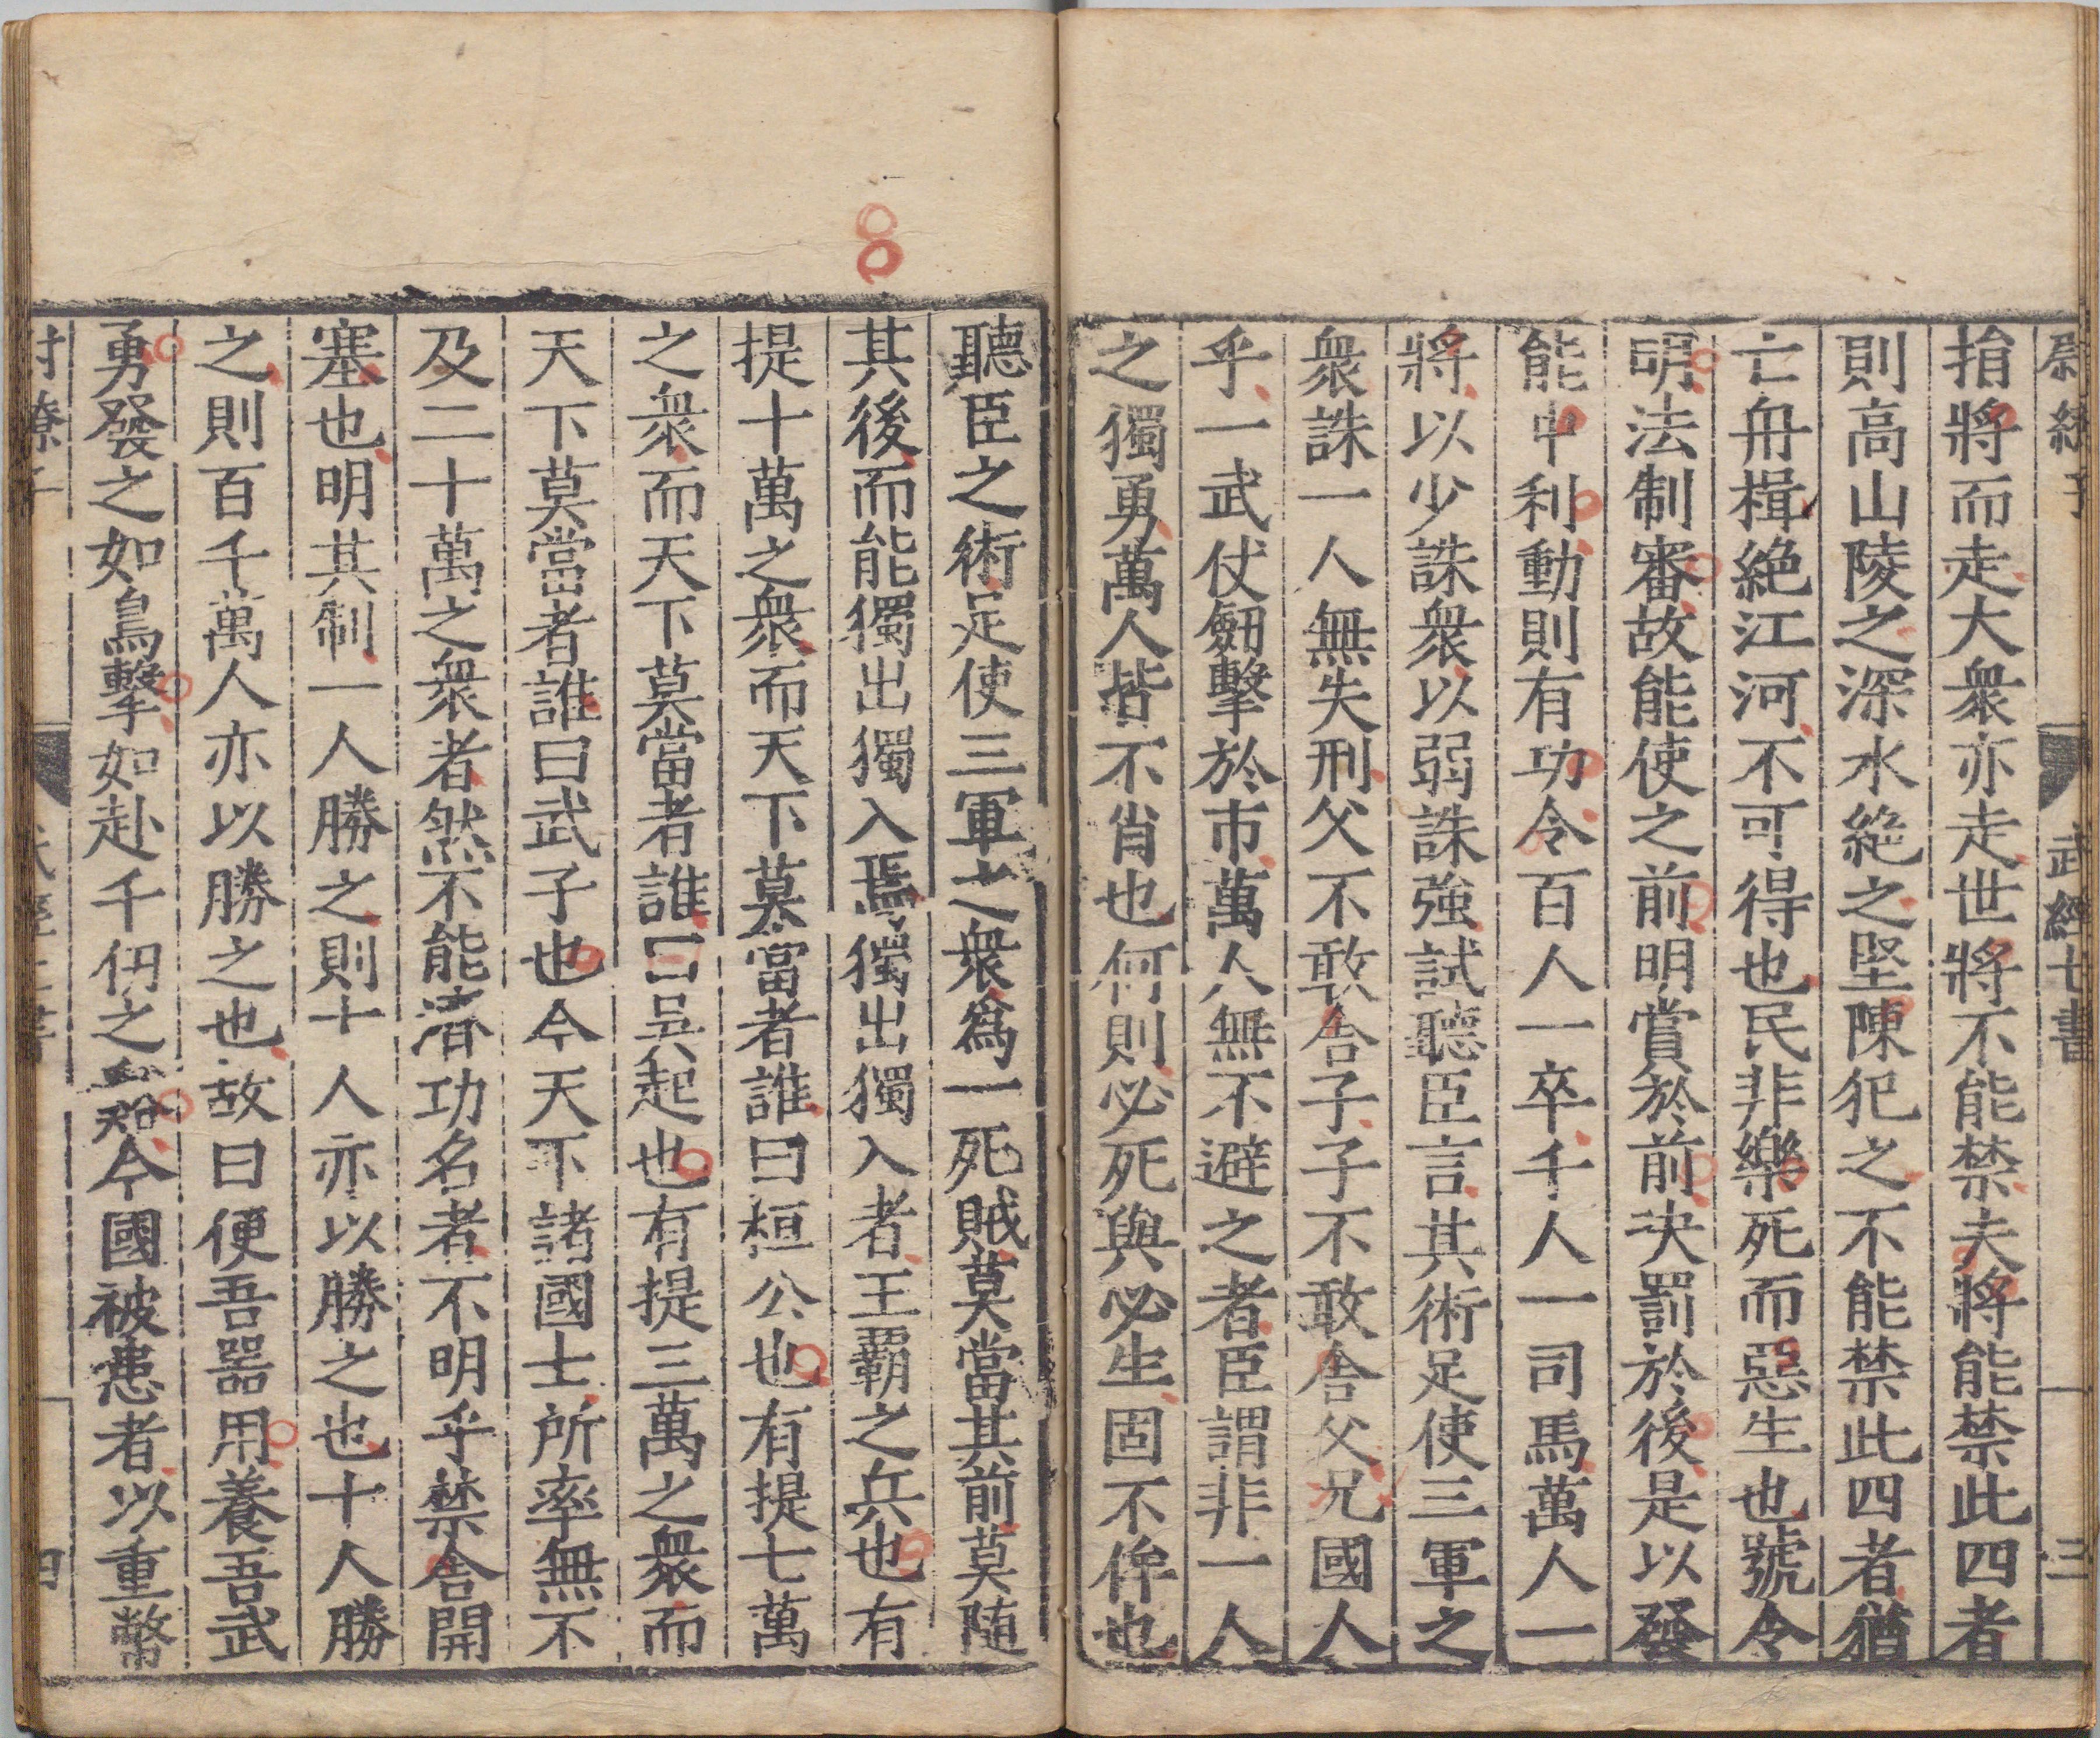 尉繚子 武經七書 三
揹將而走大衆亦走世將不能禁夫將能禁此四者
則高山陵之深水絶之堅陳犯之不能禁此四者猶
亡舟楫絶江河不可得也民非樂死而惡生也號令
明法制審故能使之前明賞於前决罰於後是以發
能中利動則有功令百人一卒千人一司馬萬人一
將以少誅衆以弱誅強試聽臣言其術足使三軍之
衆誅一人無失刑父不敢舍子子不敢舍父况國人
乎一武仗劒擊於市萬人無不避之者臣謂非一人
之獨勇萬人皆不肖也何則必死與必生固不侔也
聽臣之術足使三軍之衆爲一死賊莫當其前莫随
其後而能獨出獨入焉獨出獨入者王覇之兵也有
提十萬之衆而天下莫當者誰曰桓公也有提七萬
之衆而天下莫當者誰曰吳起也有提三萬之衆而
天下莫當者誰曰武子也今天下諸國士所率無不
及二十萬之衆者然不能濟功名者不明乎禁舍開
塞也明其制一人勝之則十人亦以勝之也十人勝
之則百千萬人亦以勝之也故曰便吾器用養吾武
勇發之如鳥擊如赴千仞之谿今國被患者以重幣
尉繚子 武經七書 四